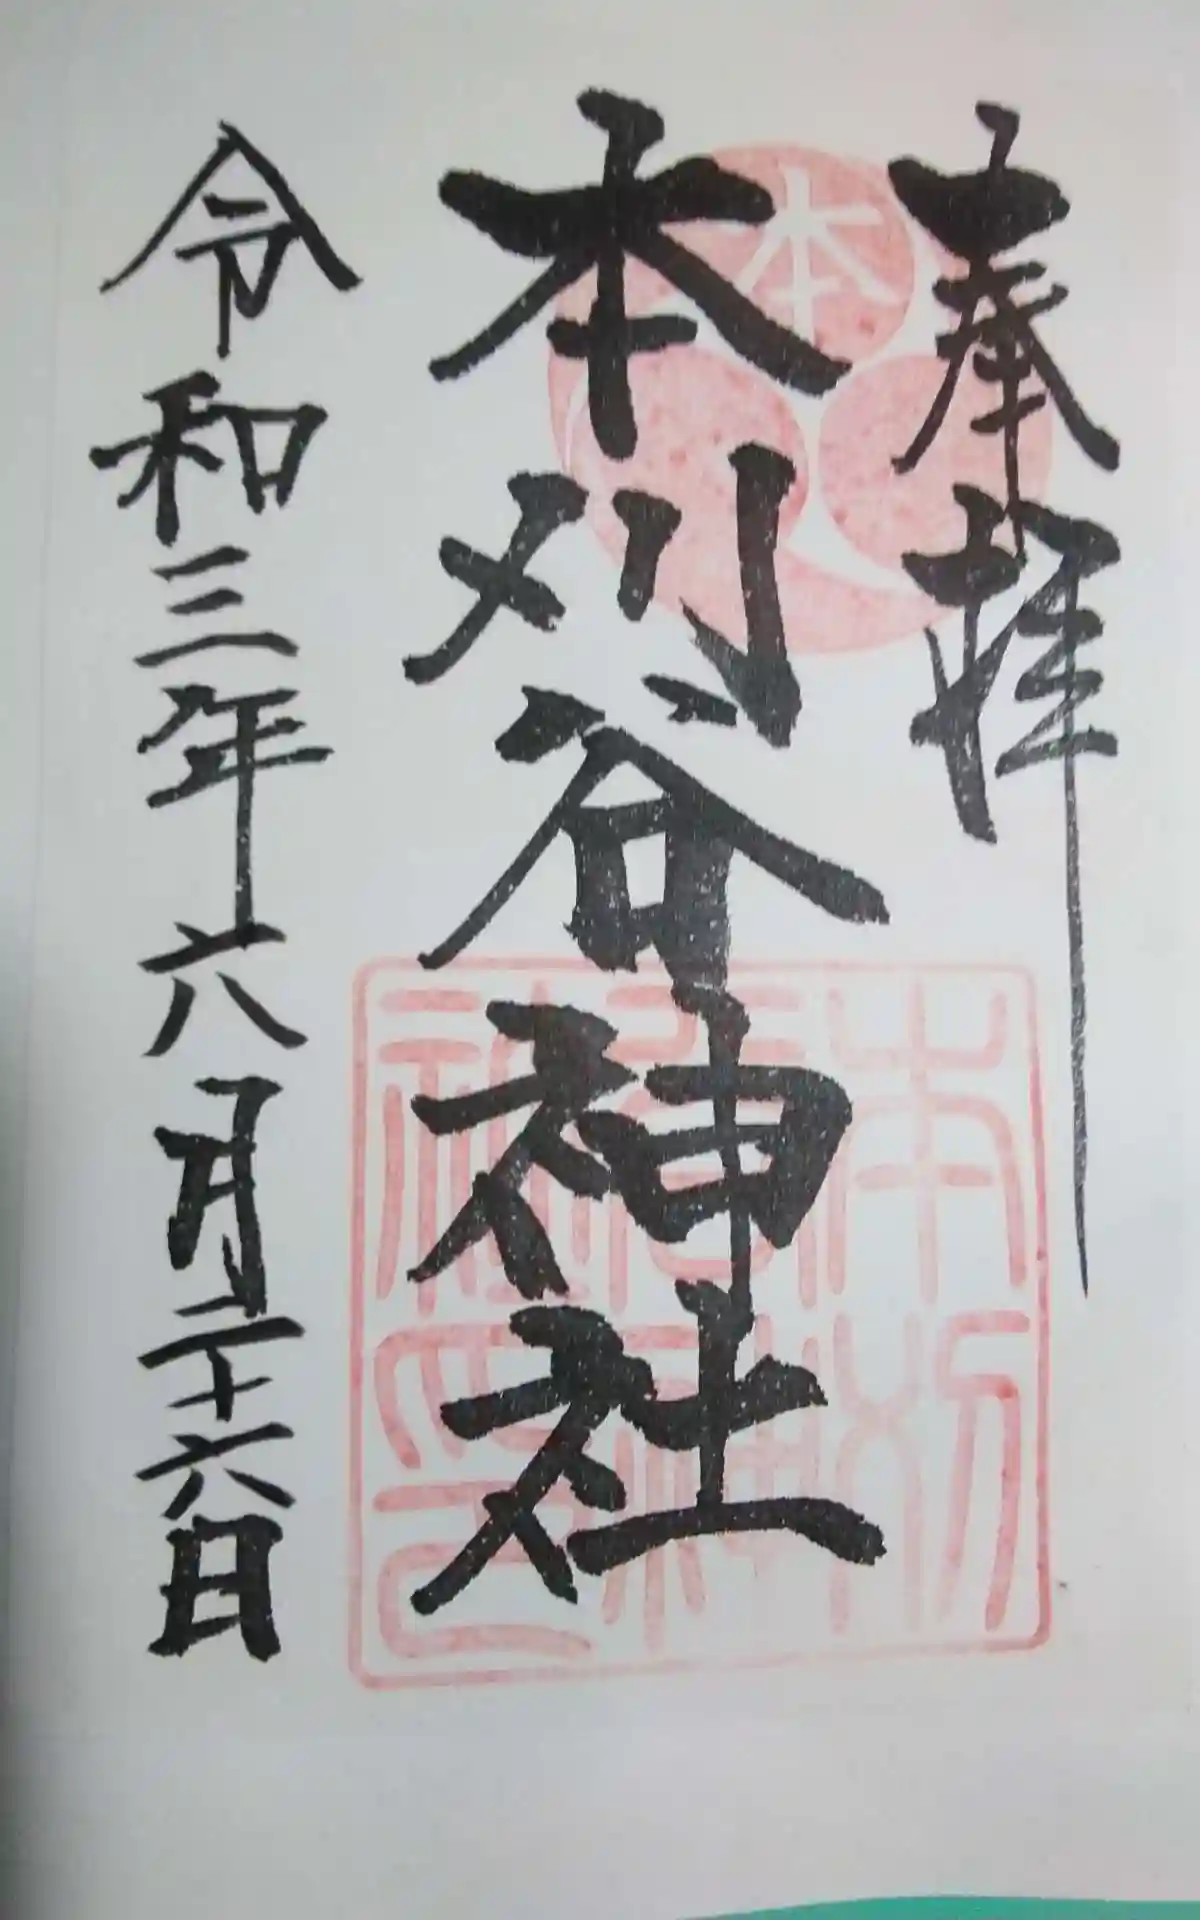 奉拝
本
本刈谷神社
本刈谷神社印
令和三年六月二十六日